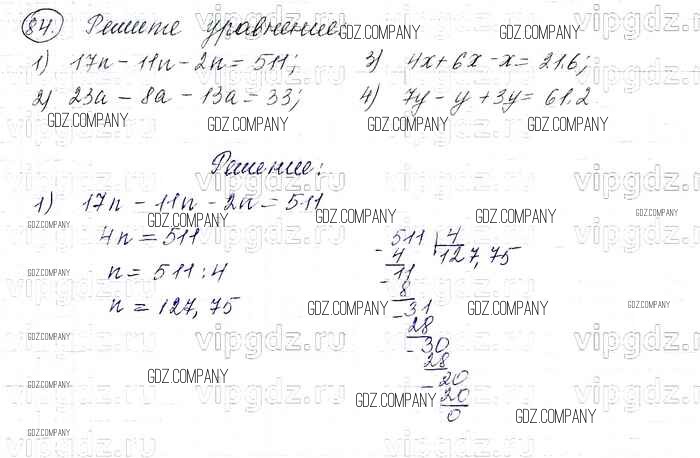 84. Решите уравнение:
1) 17n - 11n - 2n = 511; 3) 4x + 6x - x = 21.6;
2) 23a - 8a - 13a = 33; 4) 7y - y + 3y = 61.2
Решение:
1) 17n - 11n - 2n = 511
4n = 511
n = 511 : 4
n = 127,75
- 511 | 4
4 127,75
- 11
8
- 31
28
- 30
28
- 20
20
0
GDZ.COMPANY
vipgdz.ru